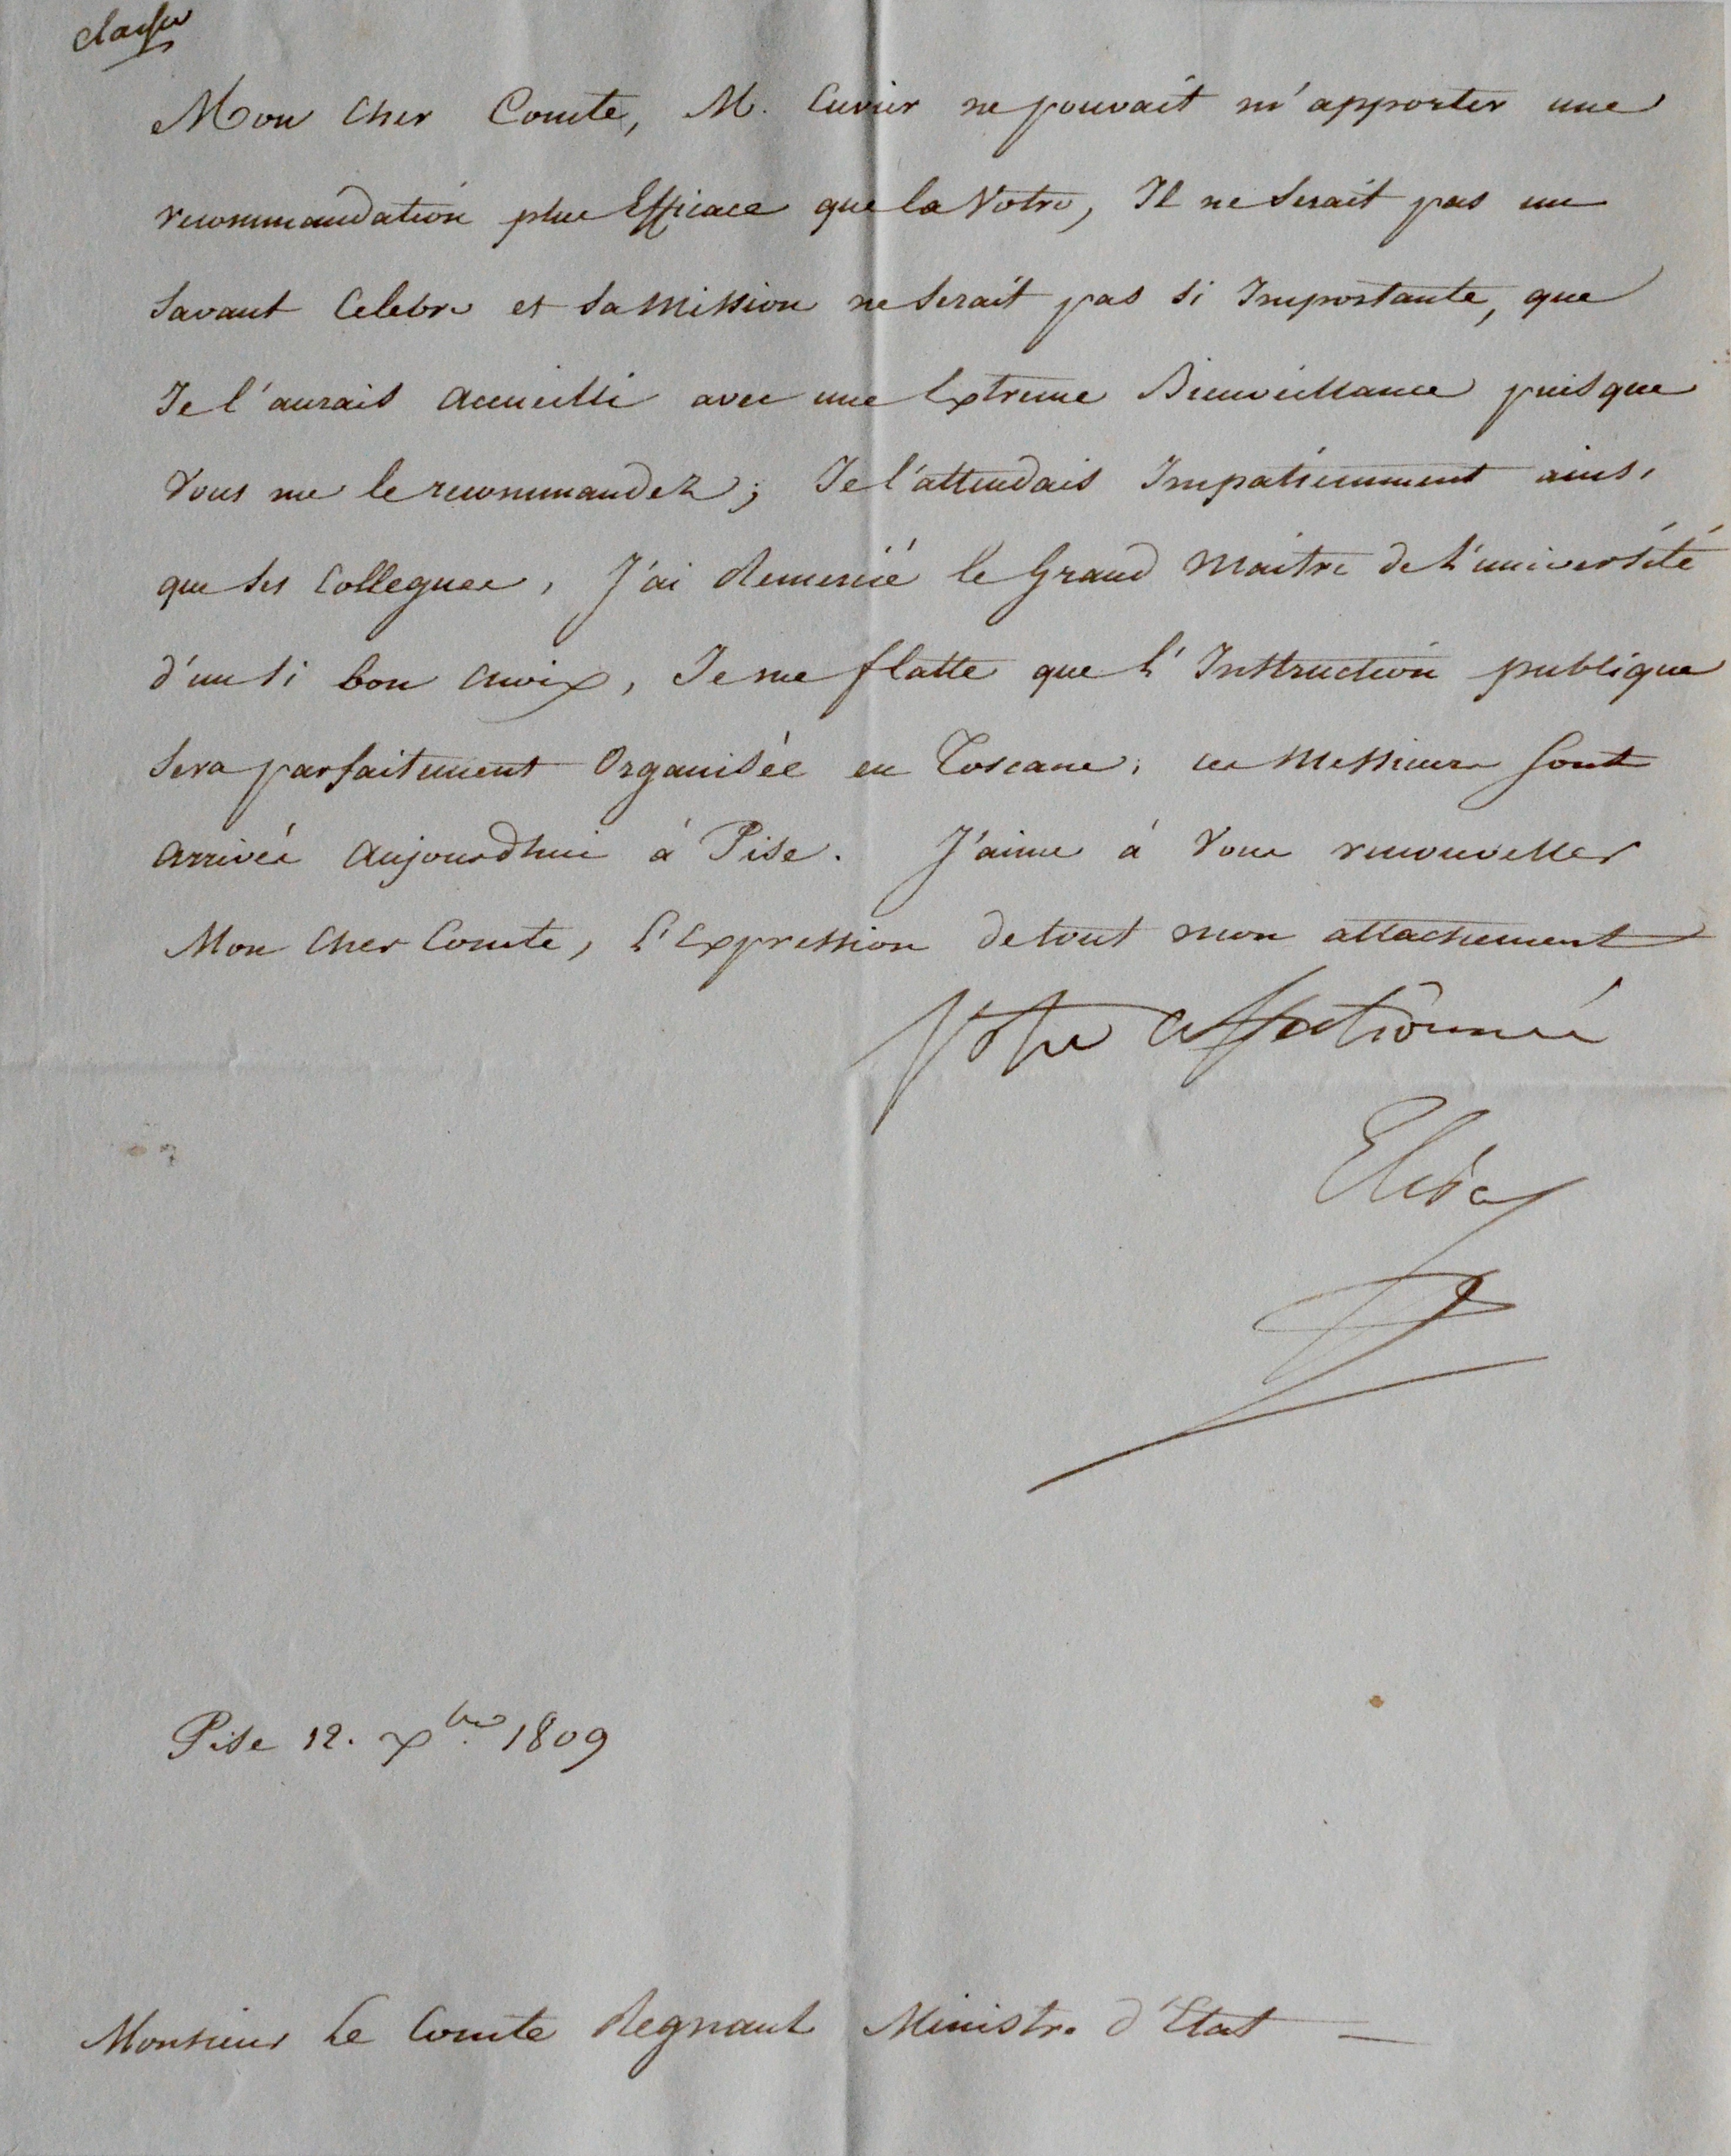 classer
Mon Cher Comte, M. Cuvier ne pouvait m'apporter une
recommandation plus Efficace que la Votre, Il ne serait pas un
savant Celebre et sa Mission ne serait pas si Importante, que
Je l'aurais accueilli avec une Extreme Bienveillance puisque
Vous me le recommandez; Je l'attendais Impatiemment ainsi
que ses Collegues, J'ai Remercié le Grand Maitre de L'université
d'un si bon choix, Je me flatte que L'Instruction publique
sera parfaitement Organisée en Toscane; ces Messieurs sont
arrivés aujourdhui à Pise. J'aime à Vous renouveller
Mon Cher Comte, L'Expression de tout mon attachement
Votre affectionnée
Elisa
Pise 12. Xbre 1809
Monsieur Le Comte Regnault Ministre d'Etat